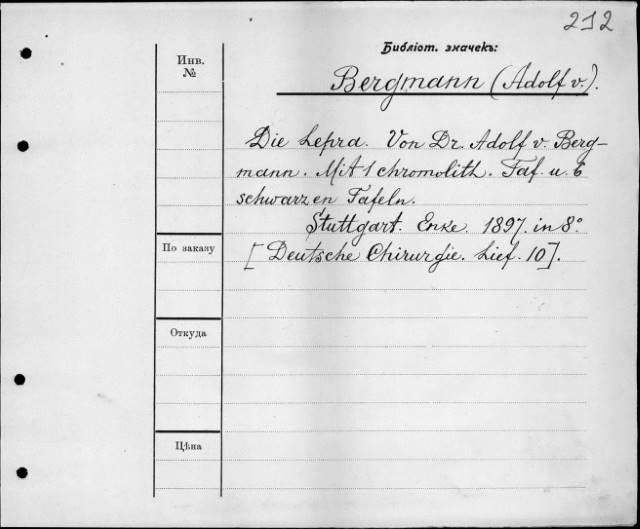 212
Библіот. значекъ:
Инв.
№
Bergmann (Adolf v.).
Die Lepra. Von Dr. Adolf v. Berg-
mann. Mit 1 chromolith. Taf. u. 6
schwarzen Tafeln.
Stuttgart. Enke. 1897. in 8°
[Deutsche Chirurgie. Lief. 10].
По заказу
Откуда
Цѣна